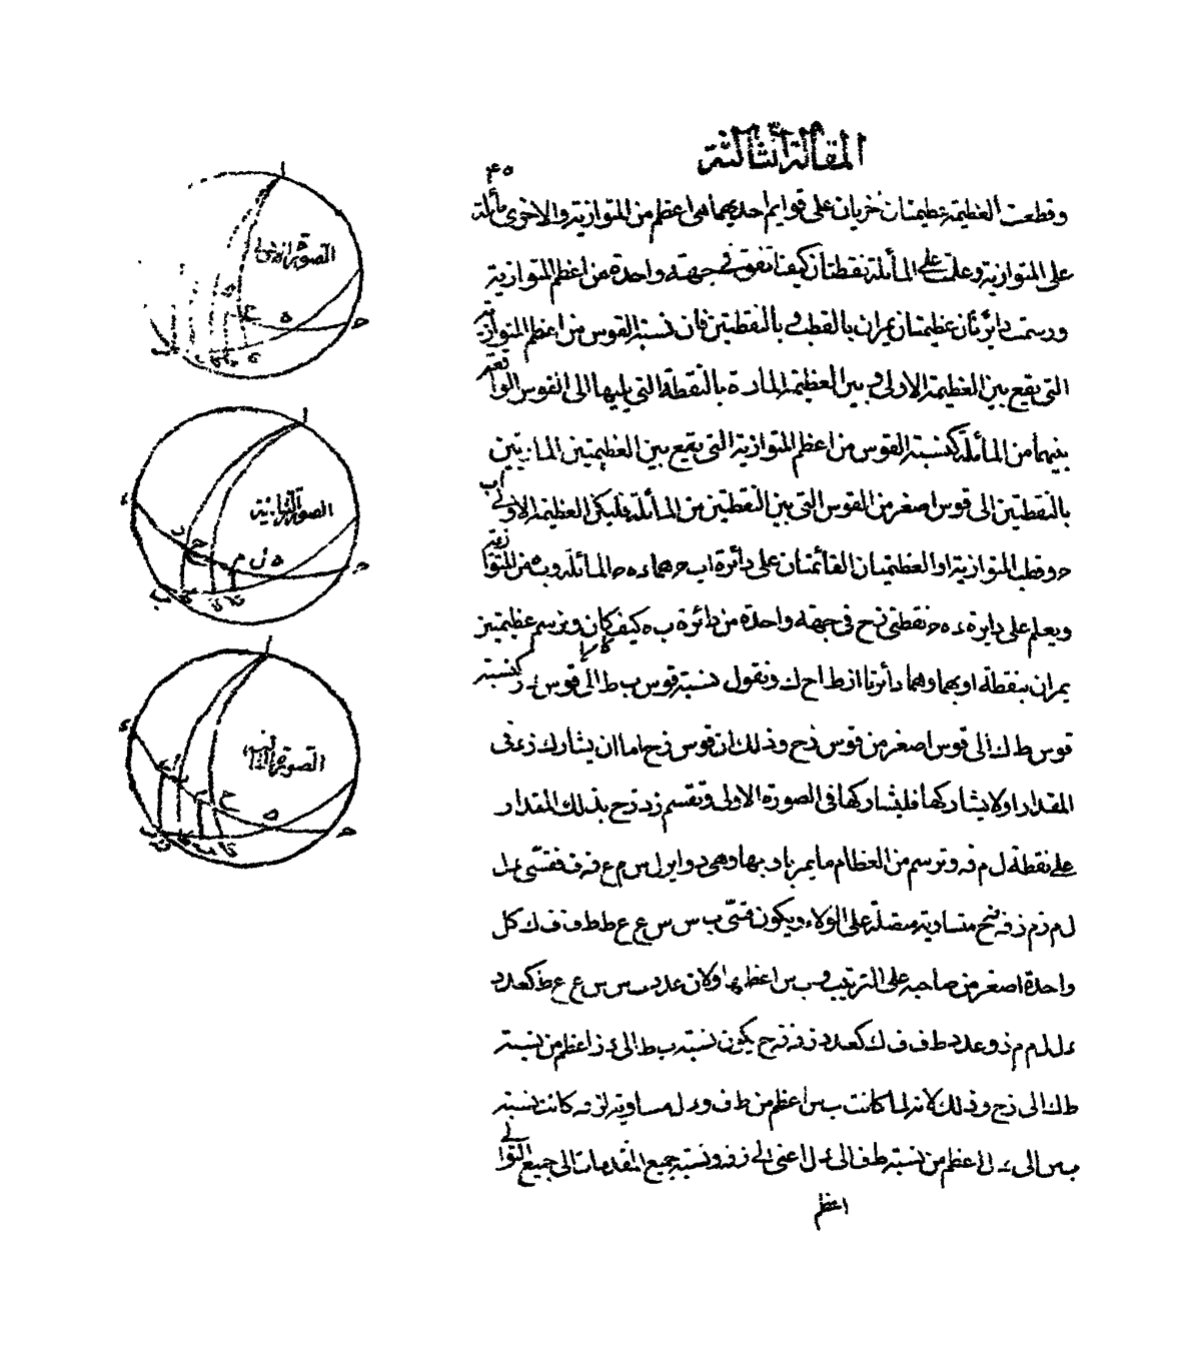 المقالة الثالثة
٤٥
وقطعت العظيمة عظيمتان اخريان على قوايم احديهما هى اعظم من المتوازية والاخرى مائلة
على المتوازية وعلمت على المائلة نقطتان كيفما تفق فى جهة واحدة من اعظم المتوازية
ورسمت دائرتان عظيمتان يمران بالقطب وبالنقطتين فان نسبة القوس من اعظم المتوازية
التى يقع بين العظيمة الاولى وبين العظيمة المارة بالنقطة التى يليها الى القوس الواقعة
بينهما من المائلة كنسبة القوس من اعظم المتوازية التى يقع بين العظيمتين المارتين
بالنقطتين الى قوس اصغر من القوس التى بين النقطتين من المائلة فليكن العظيمة الاولى اب
ح وقطب المتوازية ا والعظيمتان القائمتان على دائرة اب ح هما ء ه ح المائلة و ب ه من المتوازية
ويعلم على دايرة ء ه ح نقطتى ز ح فى جهة واحدة من دائرة ب ه كيف كان ونرسم عظيمتين
يمران بنقطة ا وبهما وهما دائرتا ا ز ط ا ح ك ونقول نسبة قوس ب ط الى قوس ء ز كنسبة
قوس ط ك الى قوس اصغر من قوس ز ح وذلك ان قوس ز ح اما ان يشارك ز ء فى
المقدار او لا يشاركها فليشاركها فى الصورة الاولى وتقسم ز ء ز ح بذلك المقدار
على نقطة ل م ف ونرسم من العظام ما يمر با وبها وهى دواير ا ل س م ع ف ف فقسى ء ل
ل م ز م ز ف ف ح متساوية متصلة على الولاء ويكون قسى ب س س ع ع ط ط ف ف ك كل
واحدة اصغر من صاحبه على الترتيب و ب س اعظمها ولان عدد ب س س ع ع ط كعدد
ء ل ل م م ز وعدد ط ف ف ك كعدد ز ف ف ح يكون نسبة ب ط الى ء ز اعظم من نسبة
ط ك الى ز ح وذلك لانه لما كانت ب س اعظم من ط ف و ء ل مساوية لز ف كانت نسبة
ب س الى ء ل اعظم من نسبة ط ف الى ء ل اعنى الى ز ف ونسبة جميع المقدمات الى جميع التوالى
اعظم
الصورة الاولى
الصورة الثانية
الصورة الثالثة